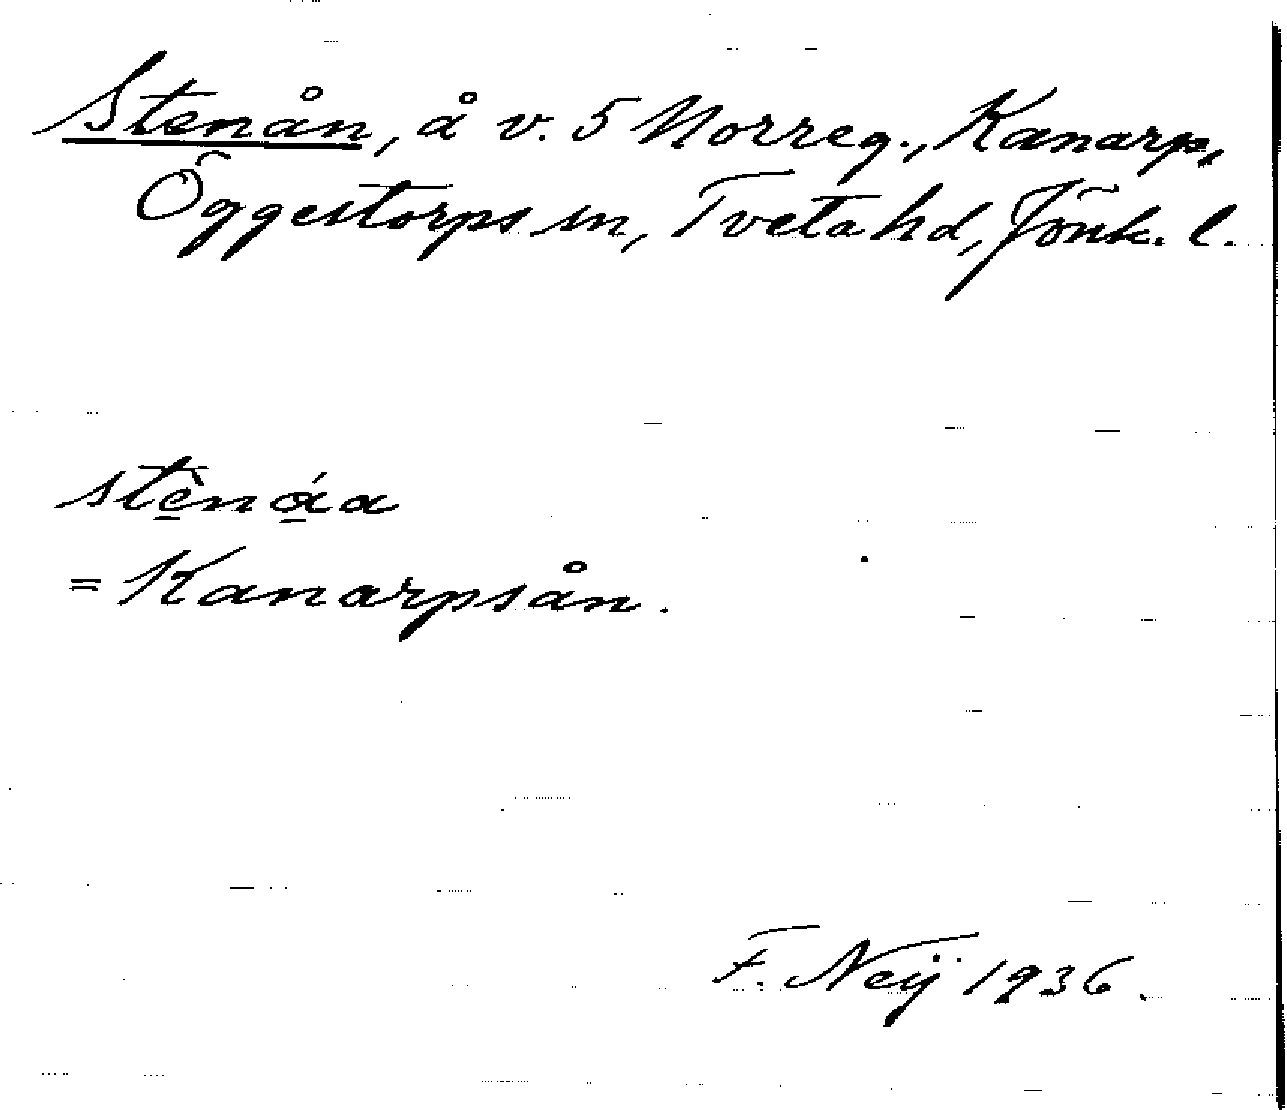 Stenån, å v. 5 Norreg., Kanarp,
Öggestorps sn, Tveta hd, Jönk. l.
stènáa
= Kanarpsån.
F. Neij 1936.